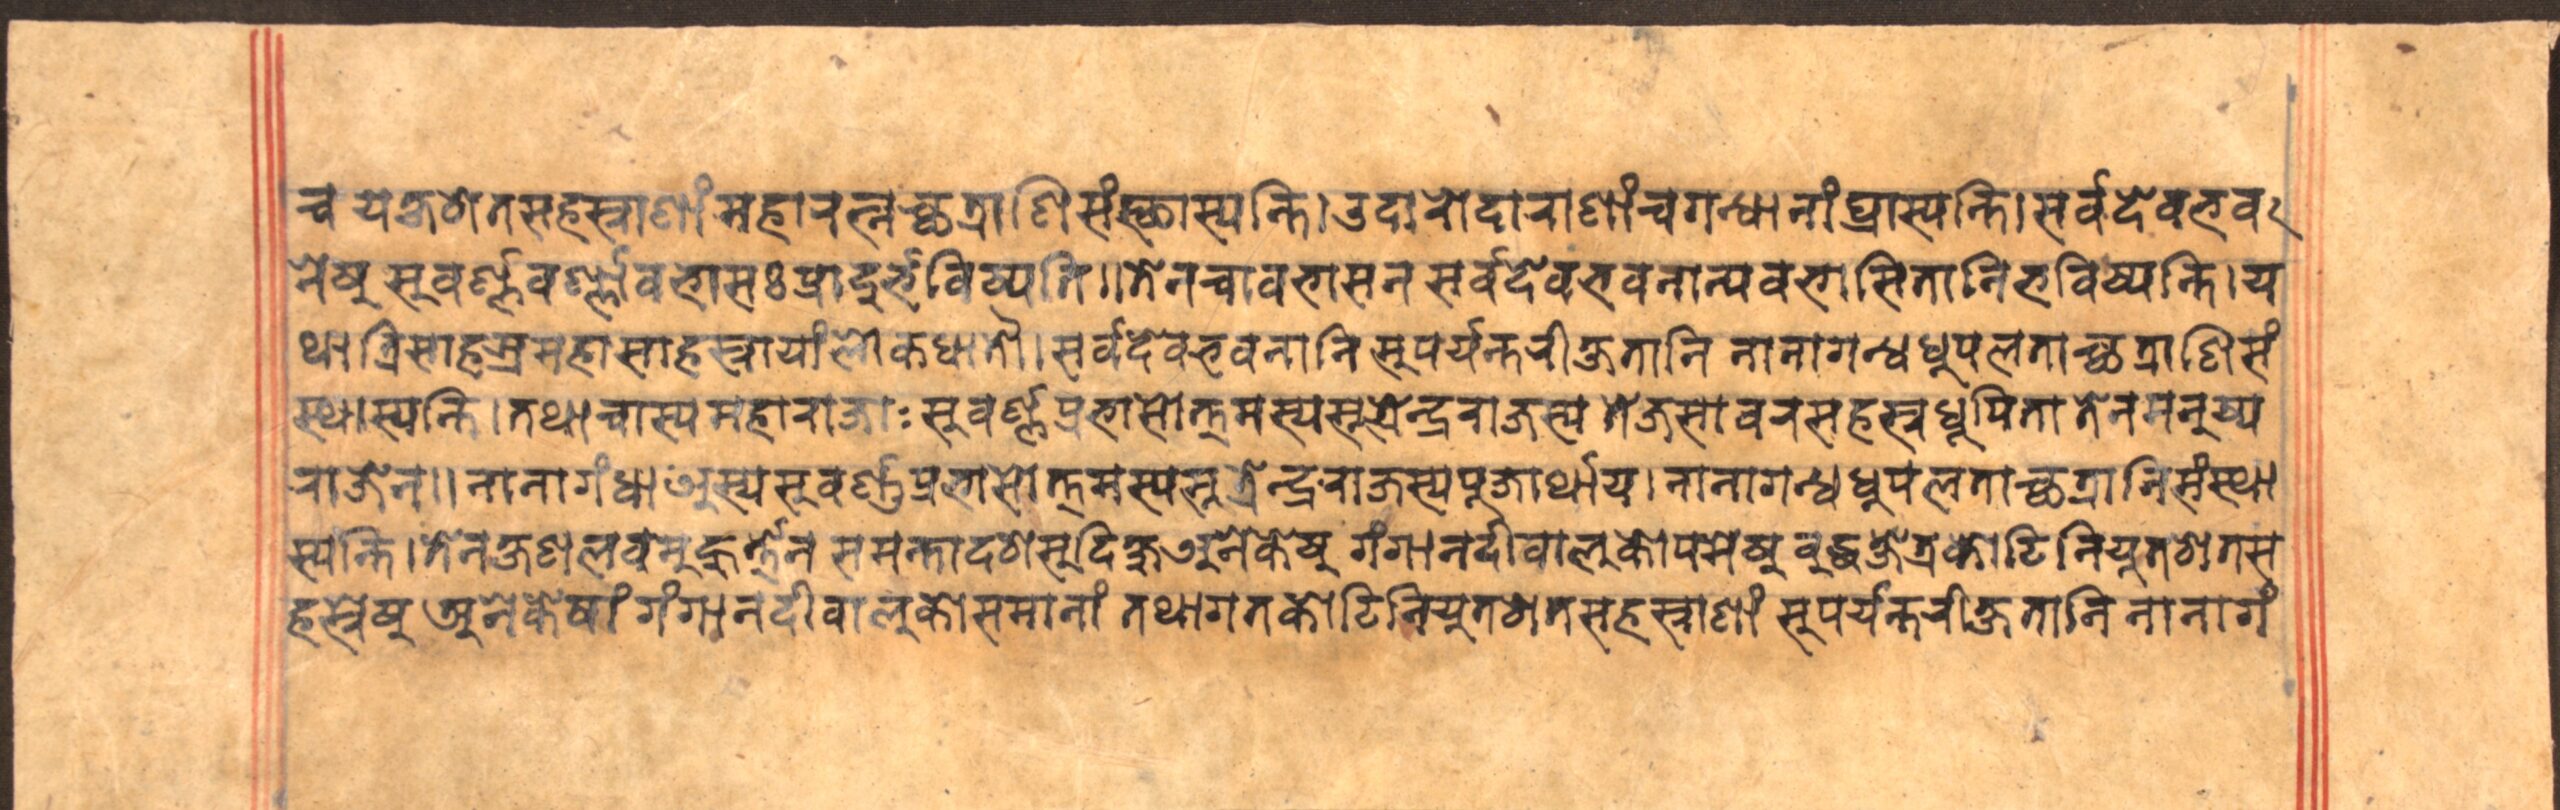 च यक्षशतसहस्त्राणां महारत्नच्छत्राणि संस्छास्यन्ति।उदारोदाराणांचगन्धानांघ्रास्यन्ति।सर्वदेवभव
नेषु सुवर्ण्णवर्ण्णावभासः प्रादुर्भविष्यति॥तेनचावभासन सर्वदेवभवनान्यवभासितानिभविष्यन्ति।य
था त्रिसाहस्रमहासाहस्त्रायांलोकधातौ।सर्वदेवभवनानि सुपर्यन्तरीक्षतानि नानागन्धधुपलताच्छत्राणिसं
स्थास्यन्ति।तथाचास्य महाराजाः सुवर्ण्णप्रभासोत्त्मस्यसूत्रेन्द्रराजस्य तेजसावरसहस्त्रधूपिता तेनमनुष्य
राजेन॥नानागंधा अस्यसुवर्ण्णप्रभासोत्त्मस्यसूत्रेन्द्रराजस्यपूजार्थाय।नानागन्धधुपलताच्छत्रानिसंस्था
स्यन्ति।तेनक्षणलवमुहूर्त्तेन समन्तादशसुदिक्षुअनेकेषु गंगानदीवालुकोपमेषु बुद्धक्षेत्रकोटिनियुतशतस
हस्त्रेषु अनेकेषां गंगानदीवालुकोसमानां तथागतकोटिनियुतशतसहस्त्राणां सुपर्यन्तरीक्षतानि नानागं